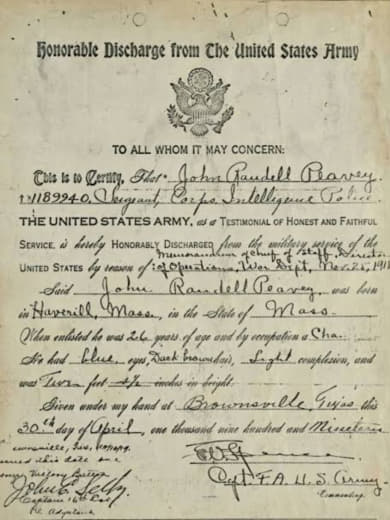 Honorable Discharge from The United States Army
TO ALL WHOM IT MAY CONCERN:
This is to Certify, That John Randell Peavey.
1189940, Sergeant, Corps Intelligence Police.
THE UNITED STATES ARMY, as a TESTIMONIAL OF HONEST AND FAITHFUL
SERVICE, is hereby HONORABLY DISCHARGED from the military service of the
Memorandum of Chief of Staff, Director
UNITED STATES by reason of: of Operations, War Dept, Nov. 25, 191
Said John Randell Peavey, was born
in Haverill, Mass, in the State of Mass.
When enlisted he was years of age and by occupation a
He had blue eyes, Dark brown hair, Light complexion, and
was feet inches in height.
Given under my hand at Brownsville, Texas this
30th day of April, one thousand nine hundred and Nineteen
this date
Victory Button
John
Capt. F.A. U.S. Army
Captain 16th
Adjutant
Commanding.